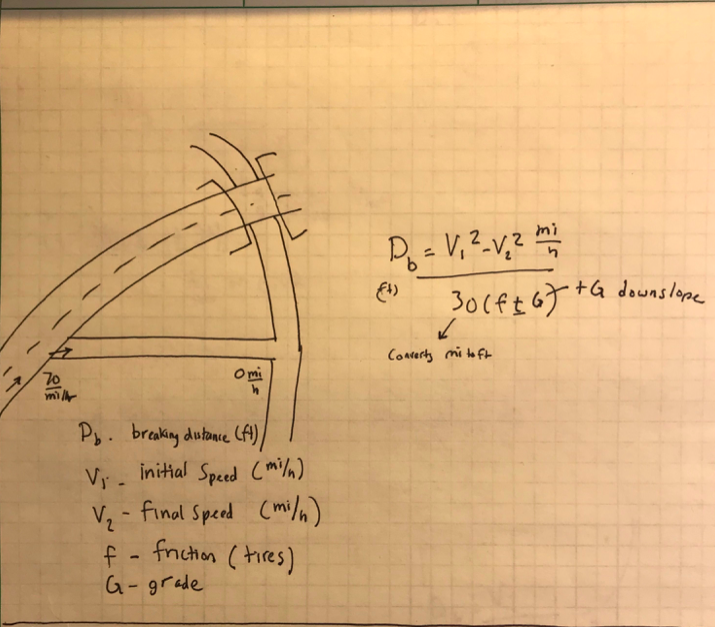 D_b = V_1^2 - V_2^2 mi/h
(ft)
30(f ± G)
+G downslope
Converts mi to ft
70 mi/hr
0 mi/h
D_b. breaking distance (ft)
V_1 - initial Speed (mi/h)
V_2 - final speed (mi/h)
f - friction (tires)
G - grade